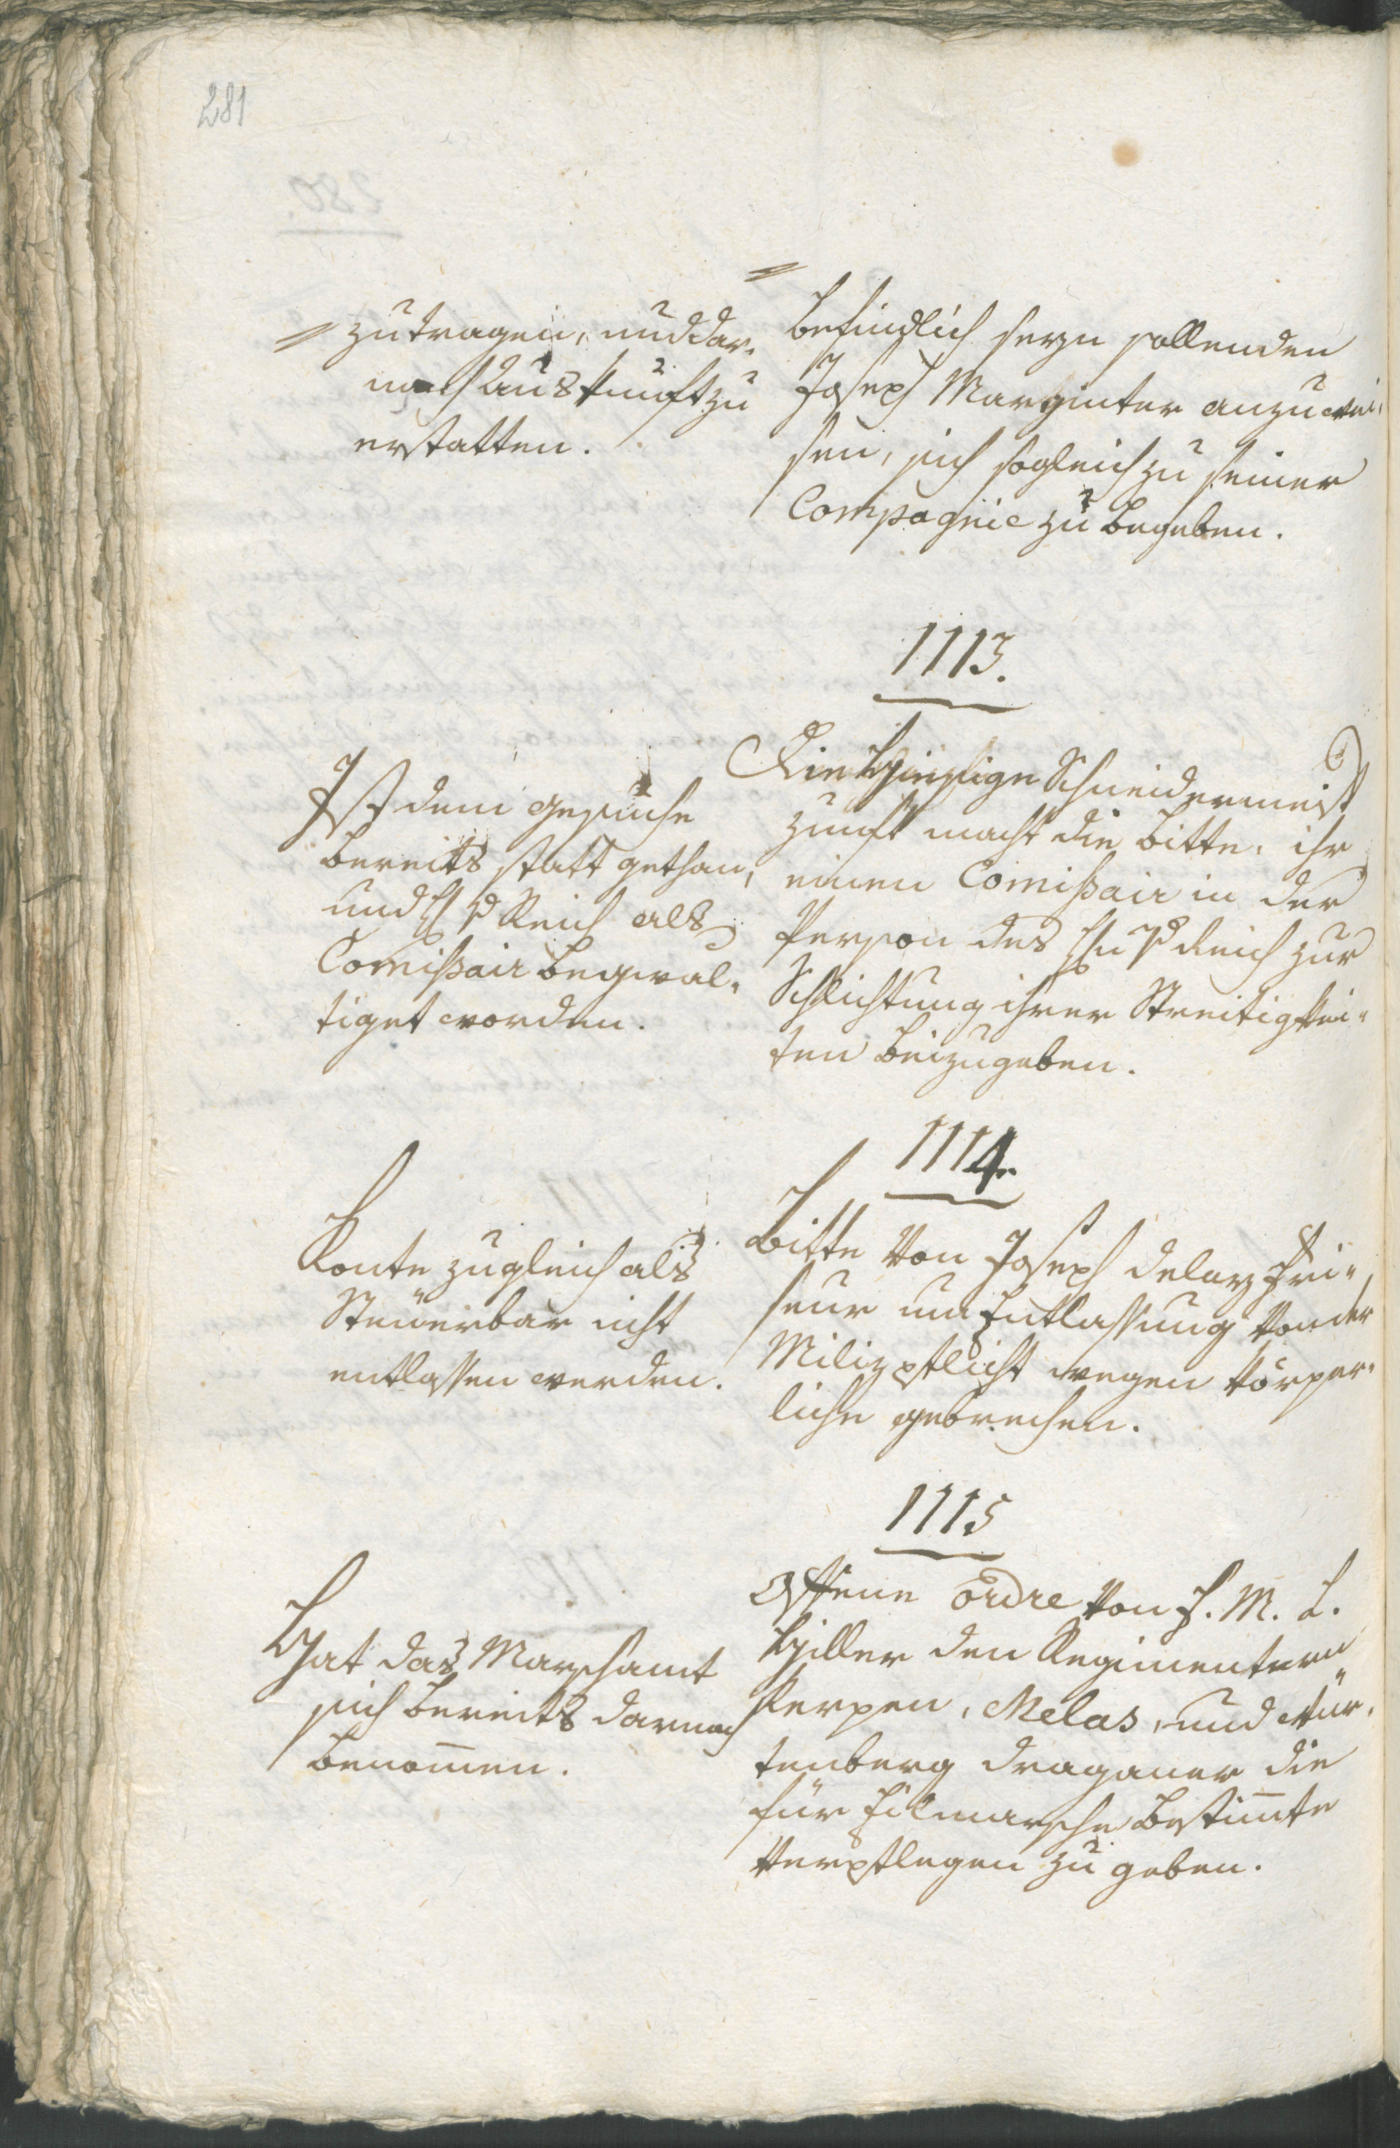 281
= zutragen, und dar-
nach Auskunft zu
erstatten.
=
befindlich seyn sollenden
Joseph Marginter anzuwei-
sen, sich sogleich zu seiner
Compagnie zu begeben.
1113.
Ist dem Gesuche
bereits statt gethan,
und H P Reich als
Comißair begwal-
tiget worden.
Die Hiesige Schneidermeist
zunft macht die Bitte, ihr
einen Comißair in der
Person des H P Reich zur
Schlichtung ihrer Streitigkei-
ten beizugeben.
1114.
Konte zugleich als
Steuerbar nicht
entlassen werden.
Bitte von Joseph Delaz Fri-
seur um Entlassung von der
Milizpflicht wegen körper-
liche gebrechen.
1115
Hat das Marschamt
sich bereits darnach
benom̄en.
Offene ordre von F. M. L.
Hiller den Regimentern
Kerpen, Melas, und Wür-
tenberg Dragoner die
für Eilmarsche bestim̄te
Verpflegen zu geben.